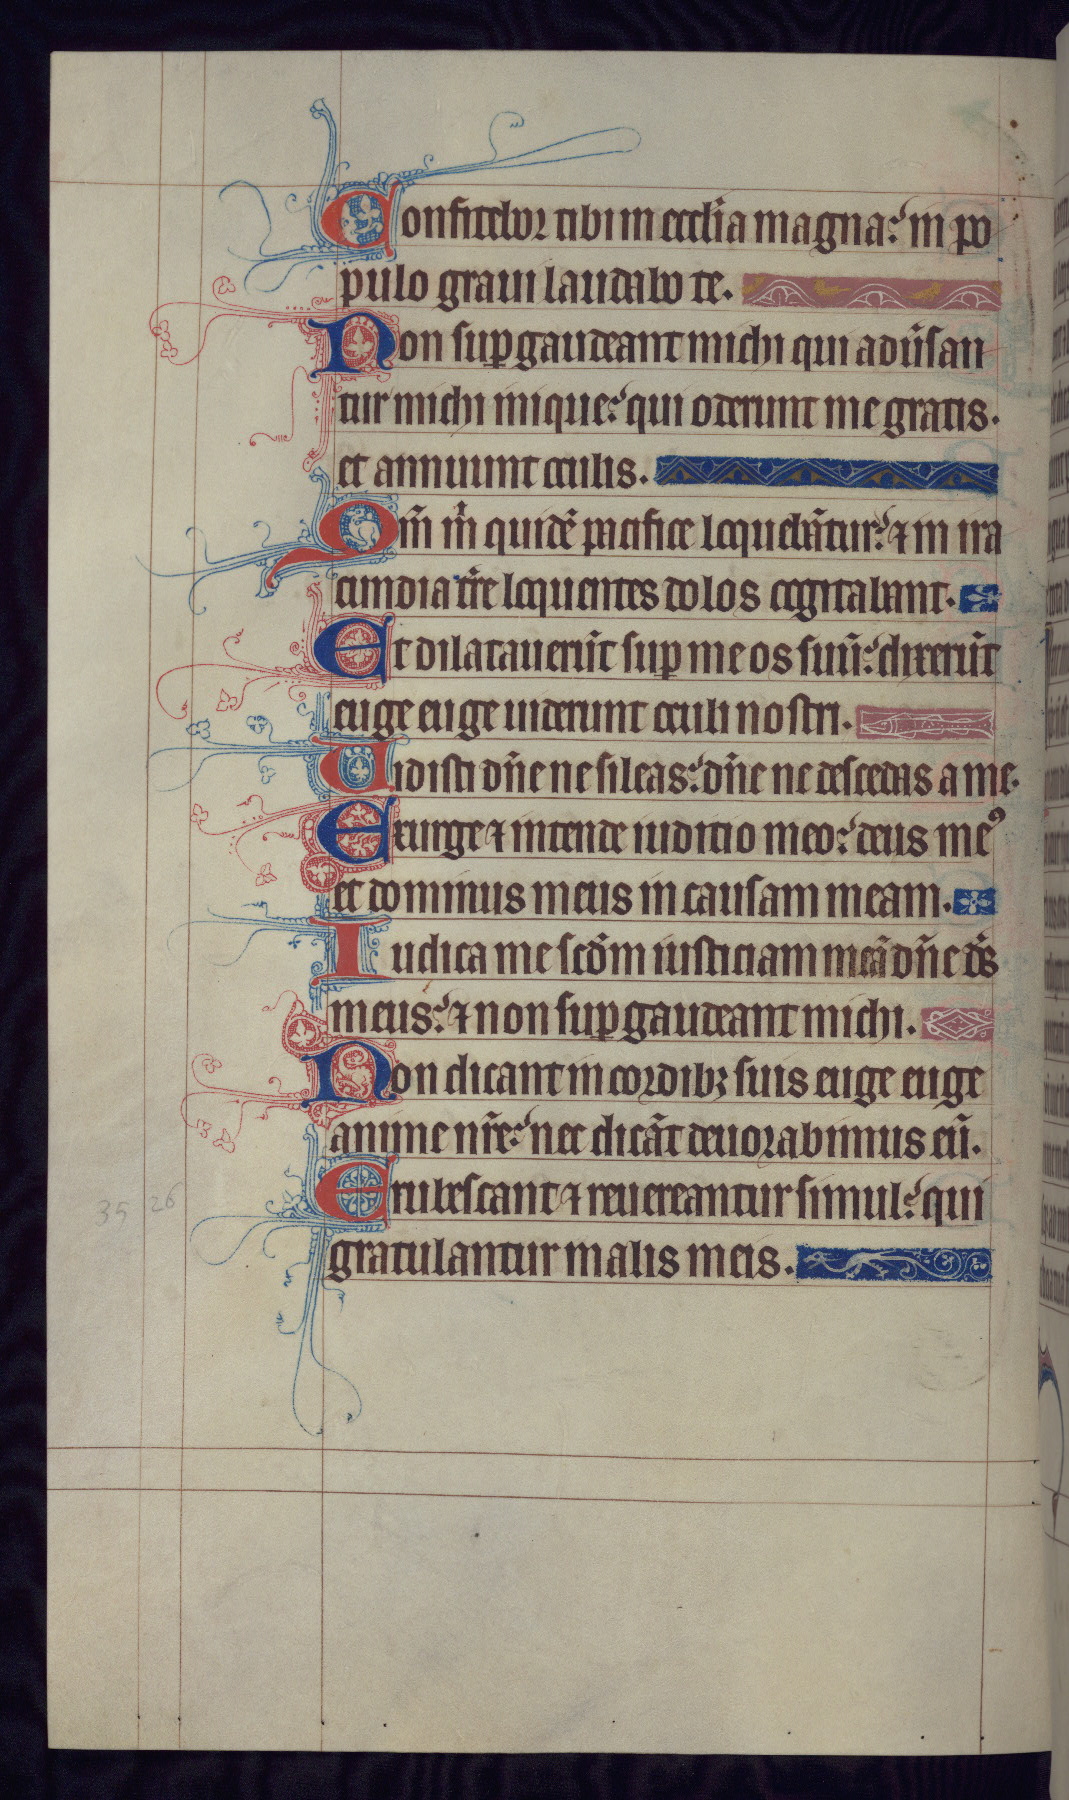 Confitebor tibi in eccl̃ia magna: in po
pulo graui laudabo te.
Non suꝑgaudeant michi qui adũsan
tur michi inique: qui oderunt me gratis.
et annuunt oculis.
Qm̃ m̃ quidẽ pacifice loquebãtur: ⁊ in ira
cundia tr̃e loquentes dolos cogitabant.
Et dilatauerũt suꝑ me os suũ: dixerũt
euge euge uiderunt oculi nostri.
Uidisti dñe ne sileas: dñe ne descedas a me.
Exurge ⁊ intende iuditio meo: deus meꝰ
et dominus meus in causam meam.
Iudica me scd̃m iusticiam meã dñe ds̃
meus: ⁊ non suꝑgaudeant michi.
Non dicant in cordibꝫ suis euge euge
anime nr̃e: nec dicãt deuorabimus eũ.
Erubescant ⁊ reuereantur simul: qui
gratulantur malis meis.
35 26